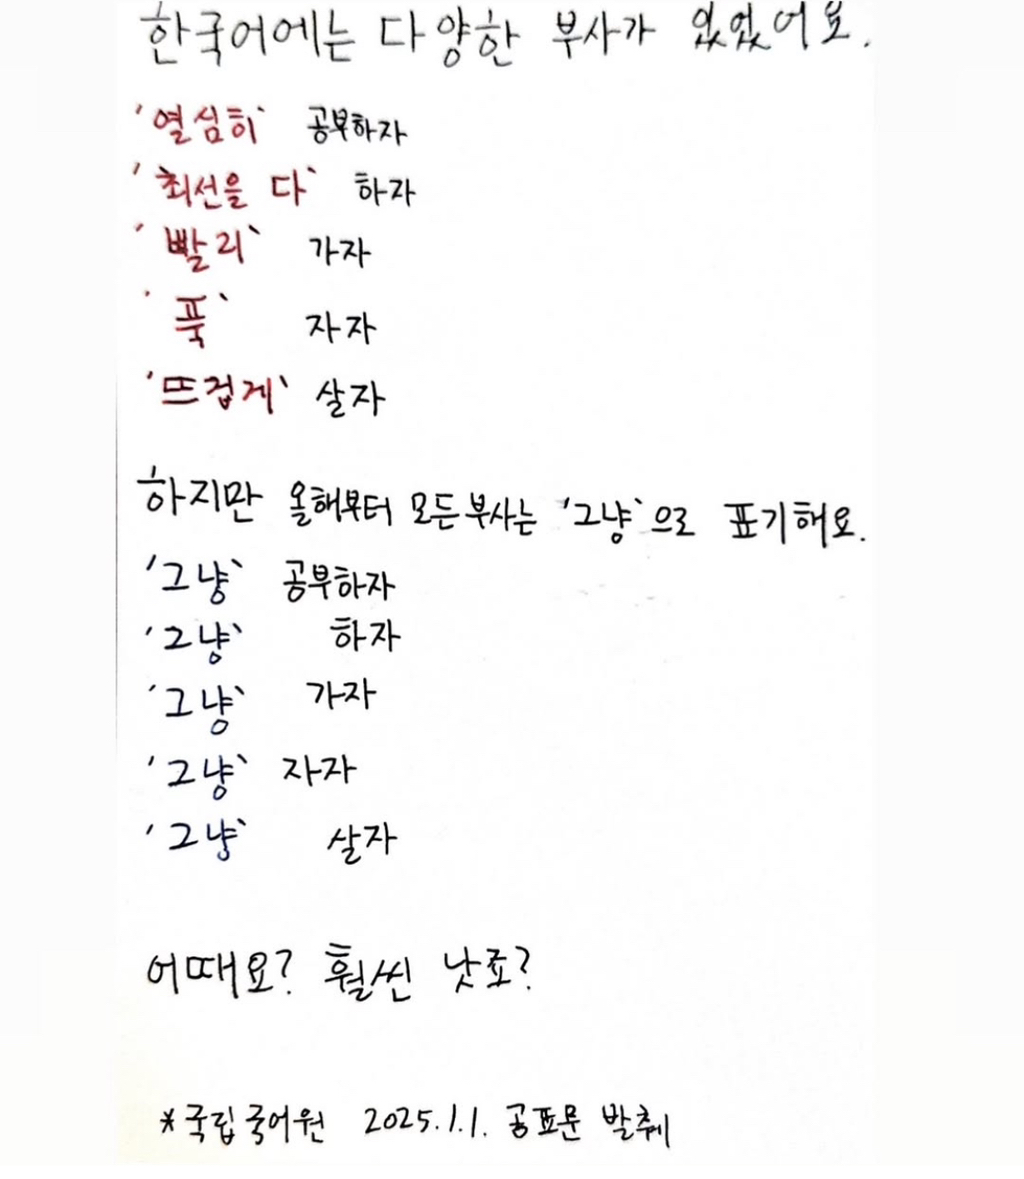 한국어에는 다양한 부사가 있었어요.
'열심히' 공부하자
'최선을 다' 하자
'빨리' 가자
'푹' 자자
'뜨겁게' 살자
하지만 올해부터 모든 부사는 '그냥'으로 표기해요.
'그냥' 공부하자
'그냥' 하자
'그냥' 가자
'그냥' 자자
'그냥' 살자
어때요? 훨씬 낫죠?
*국립국어원 2025.1.1. 공표문 발췌